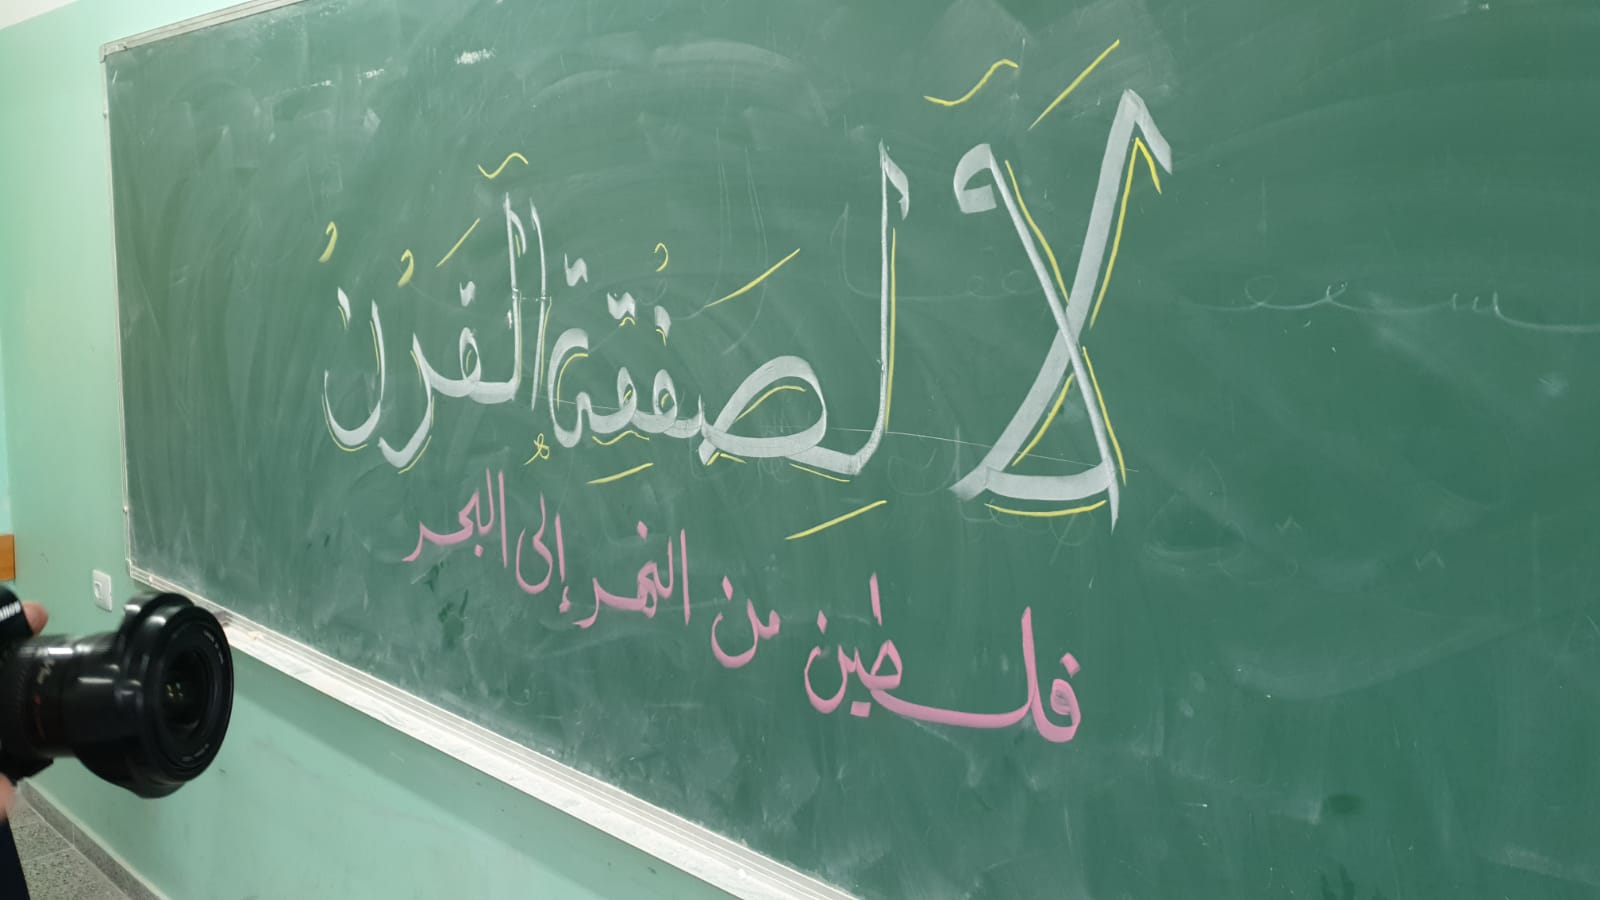 لَا لِصَفْقَةِ الْقَرْنْ
فلسطين من النهر إلى البحر